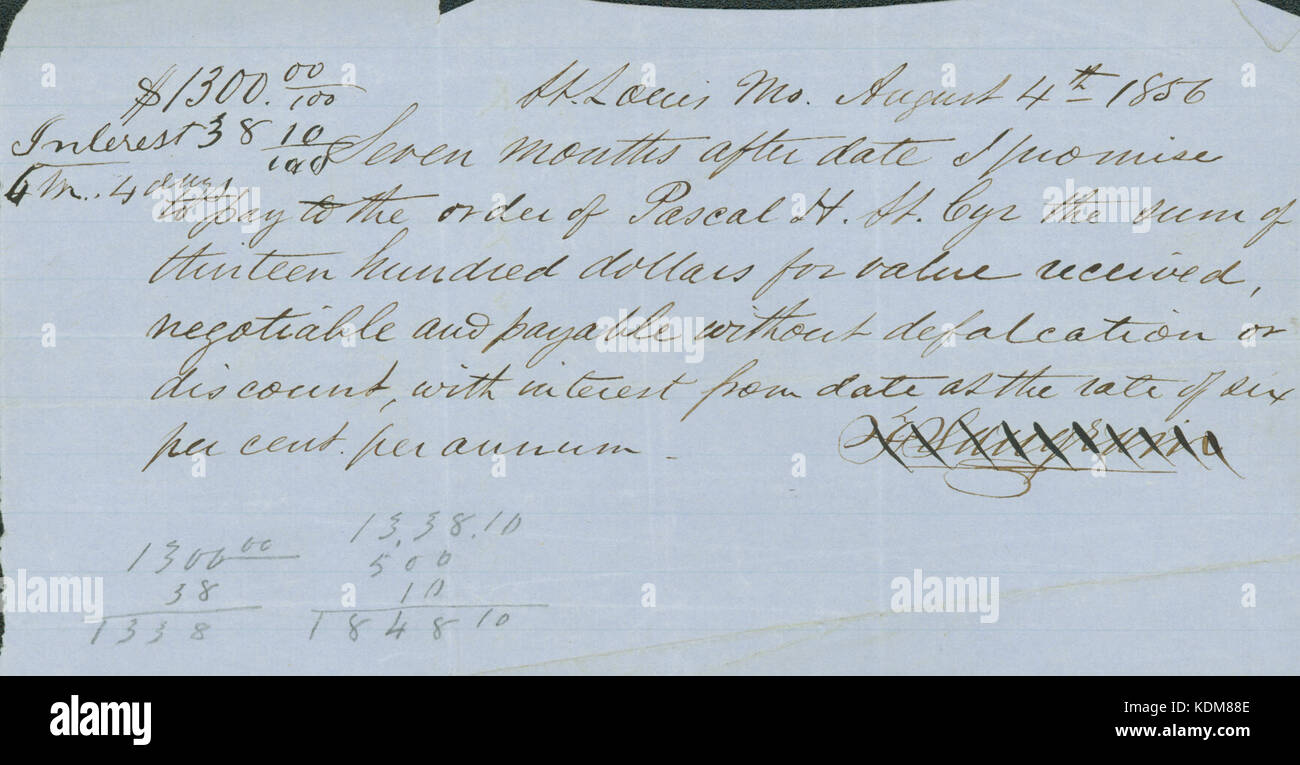 $1300.00/100 St. Louis Mo. August 4th 1856
Interest 38 10/100 Seven months after date I promise
M. 4 days to pay to the order of Pascal H. St. Cyr the sum of
thirteen hundred dollars for value received,
negotiable and payable without defalcation or
discount, with interest from date at the rate of six
per cent. per annum
1300 00
38
1338
13,38.10
500
10
1848 10
alamy
a
a
alamy
a
alamy
a
a
alamy
alamy
Image ID: KDM88E
www.alamy.com